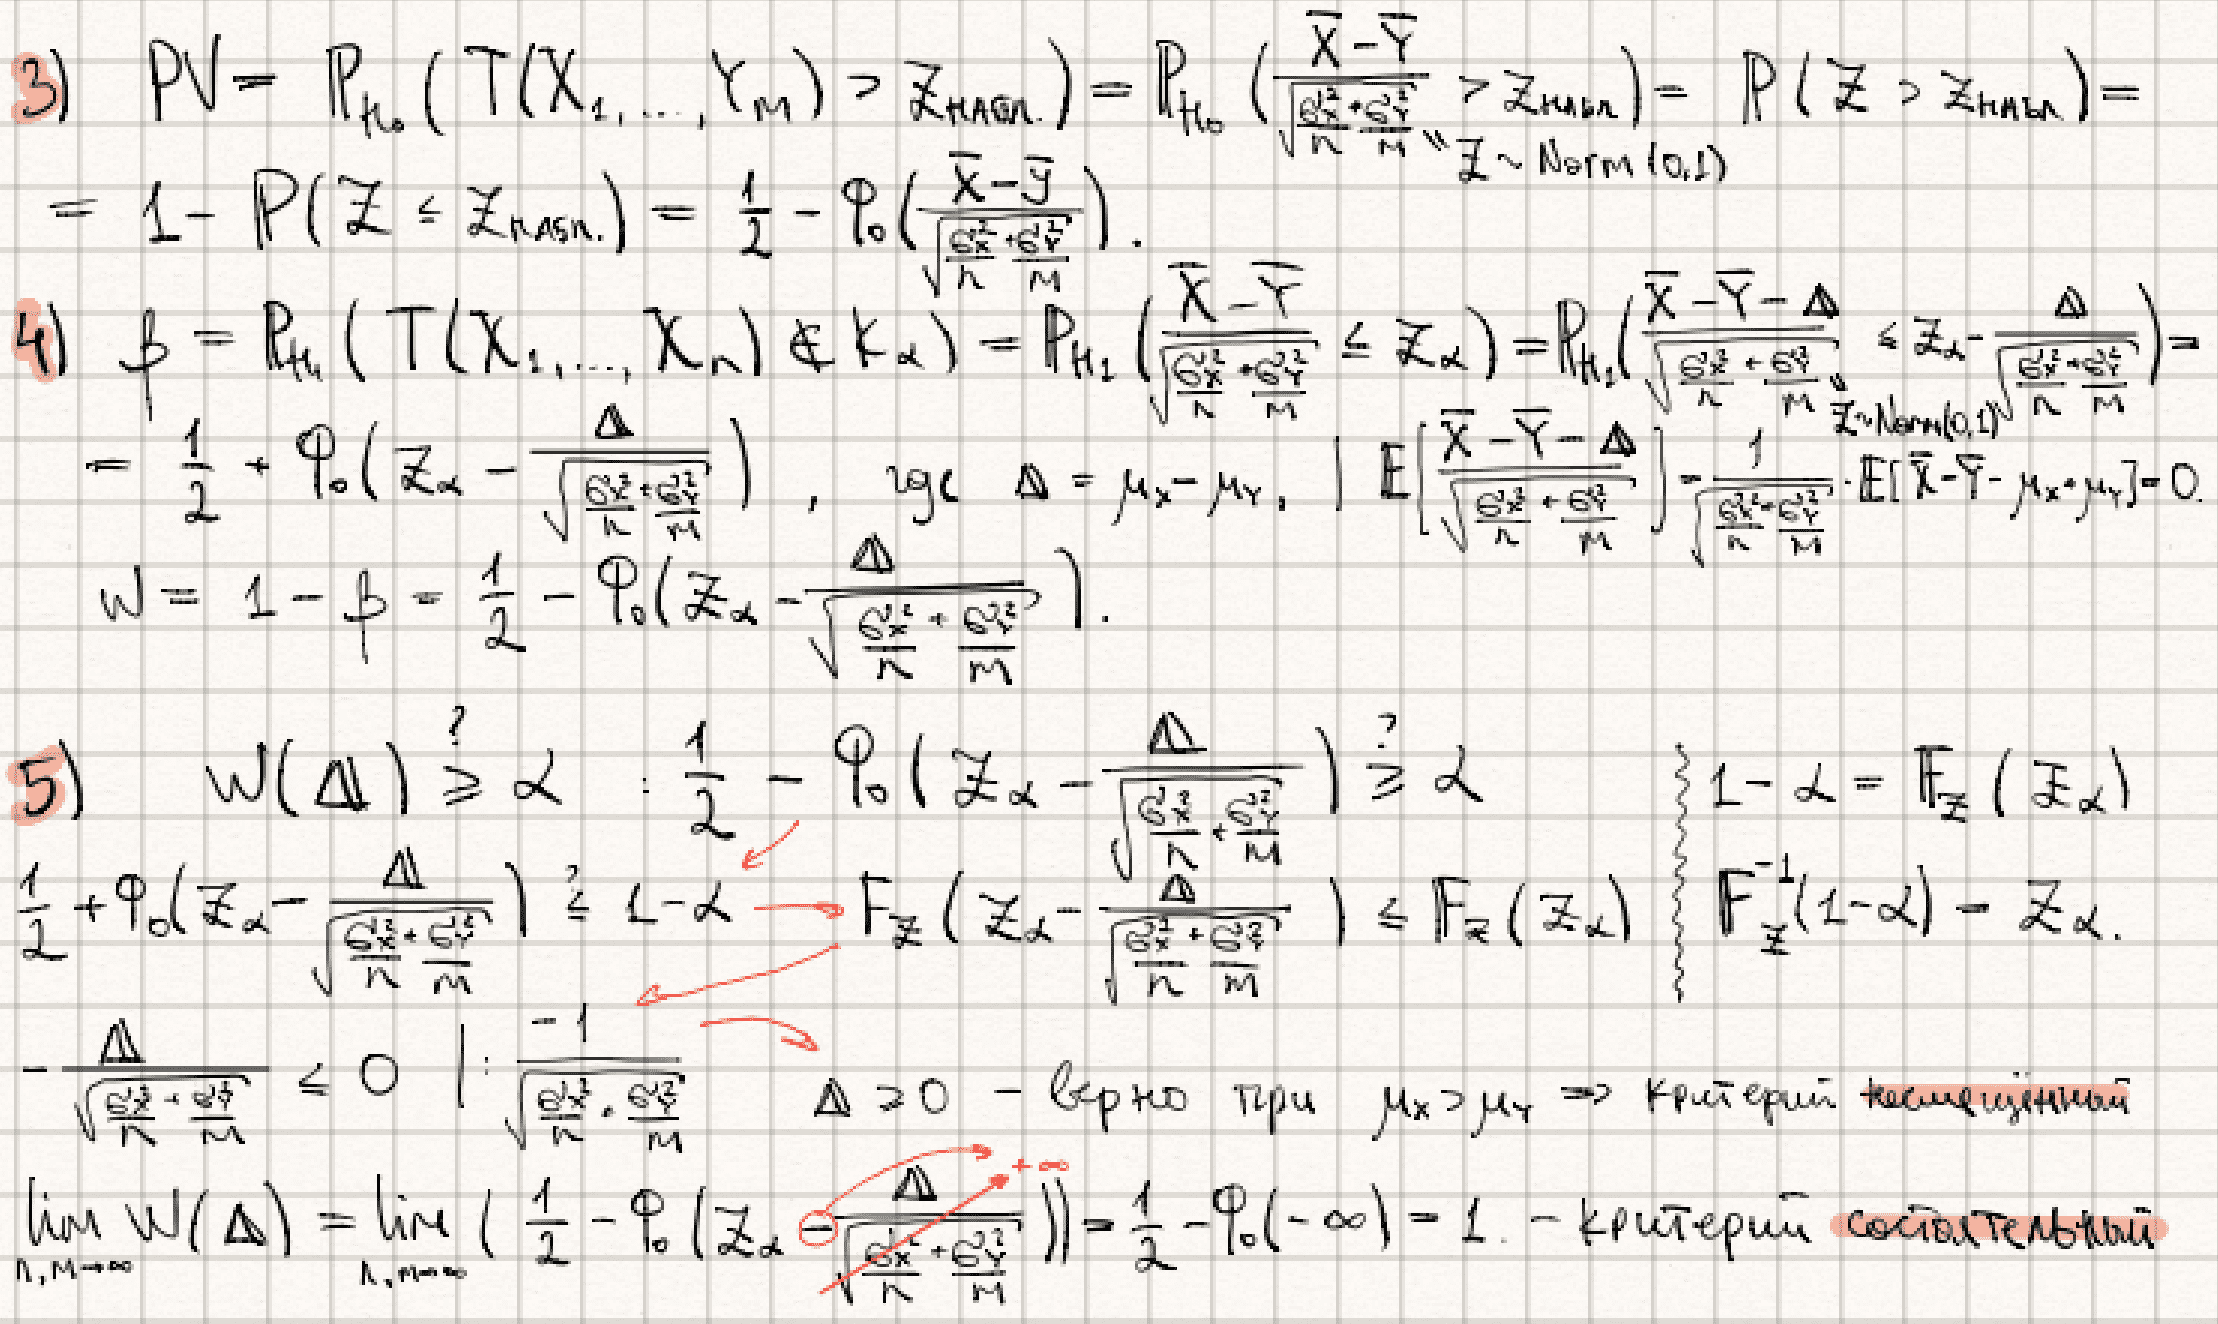 3) PV = P_{H_0}(T(X_1,...,Y_m) > z_{набл.}) = P_{H_0}((X̄-Ȳ)/√(σ_X²/n + σ_Y²/m) > z_{набл}) = P(Z > z_{набл}) =
" Z ~ Norm(0,1)
= 1 - P(Z ≤ z_{набл.}) = 1/2 - Φ_0((x̄-ȳ)/√(σ_X²/n + σ_Y²/m)).
4) β = P_{H_1}(T(X_1,...,X_n) ∉ K_α) = P_{H_1}((X̄-Ȳ)/√(σ_X²/n + σ_Y²/m) ≤ z_α) = P_{H_1}((X̄-Ȳ-Δ)/√(σ_X²/n + σ_Y²/m) ≤ z_α - Δ/√(σ_X²/n + σ_Y²/m)) =
" Z~Norm(0,1)
= 1/2 + Φ_0(z_α - Δ/√(σ_X²/n + σ_Y²/m)), где Δ = μ_X - μ_Y, | E[(X̄-Ȳ-Δ)/√(σ_X²/n + σ_Y²/m)] = 1/√(σ_X²/n + σ_Y²/m) · E[X̄-Ȳ-μ_X+μ_Y] = 0.
W = 1 - β = 1/2 - Φ_0(z_α - Δ/√(σ_X²/n + σ_Y²/m)).
5) W(Δ) ≥? α : 1/2 - Φ_0(z_α - Δ/√(σ_X²/n + σ_Y²/m)) ≥? α 1-α = F_Z(z_α)
1/2 + Φ_0(z_α - Δ/√(σ_X²/n + σ_Y²/m)) ≤? 1-α → F_Z(z_α - Δ/√(σ_X²/n + σ_Y²/m)) ≤ F_Z(z_α) F_Z^{-1}(1-α) = z_α.
-Δ/√(σ_X²/n + σ_Y²/m) ≤ 0 | : -1/√(σ_X²/n + σ_Y²/m) Δ ≥ 0 - верно при μ_X > μ_Y ⇒ критерий несмещённый
lim_{n,m→∞} W(Δ) = lim_{n,m→∞} (1/2 - Φ_0(z_α - Δ/√(σ_X²/n + σ_Y²/m))) = 1/2 - Φ_0(-∞) = 1. - критерий состоятельный
+∞